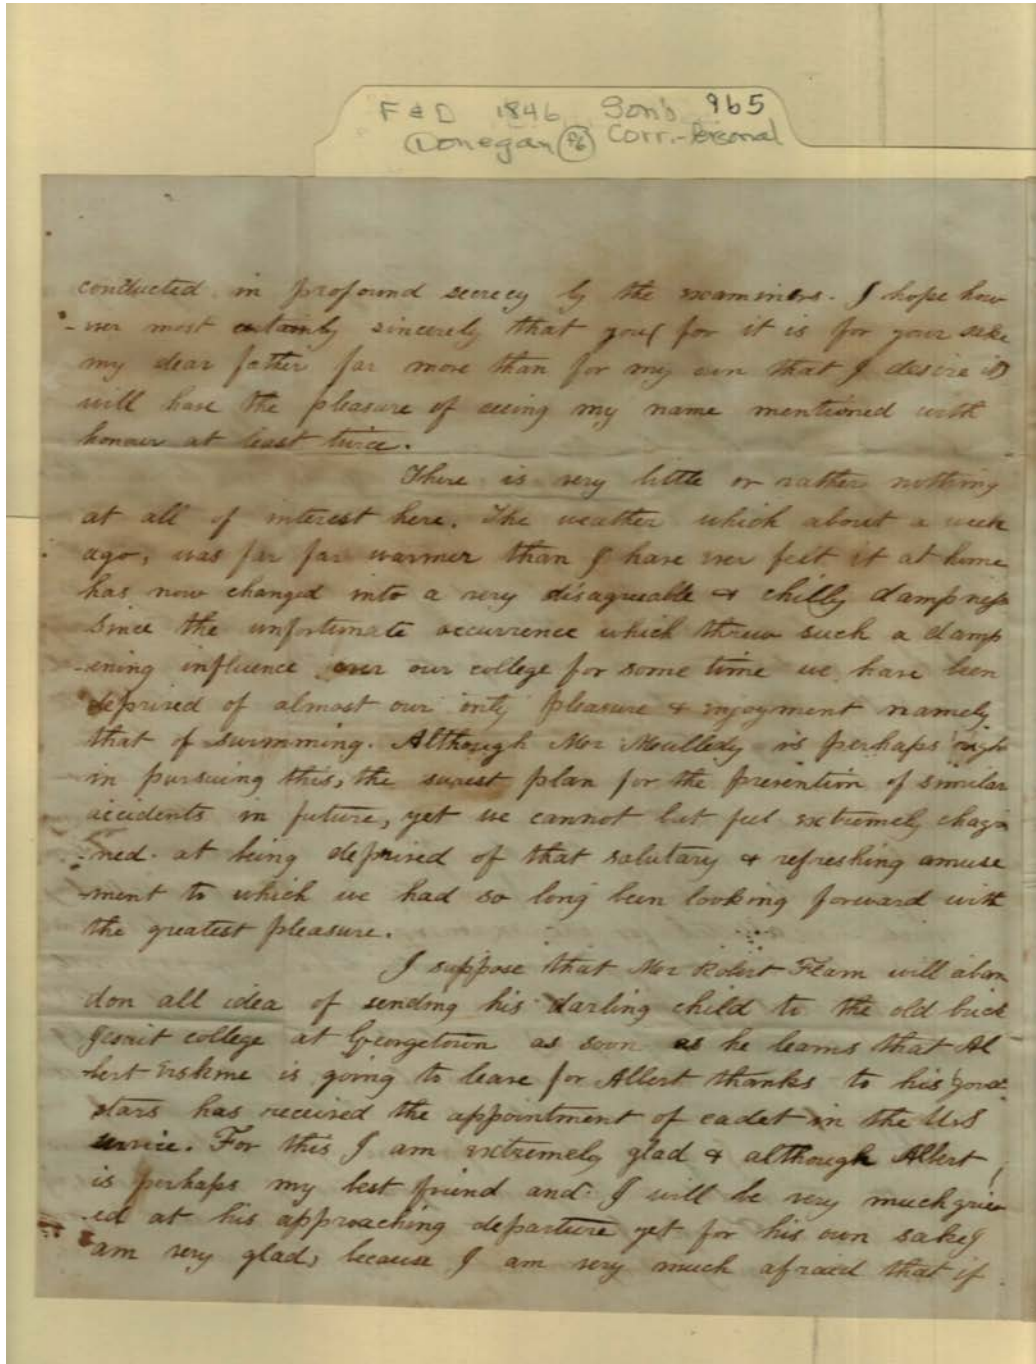 F & D 1846 Son's 965
(Donegan P6) Corr.-Personal
conducted in profound secrecy by the examiners. I hope how
-ever most certainly sincerely that you ( for it is for your sake
my dear father far more than for my own that I desire it)
will have the pleasure of seeing my name mentioned with
honour at least twice.
There is very little or rather nothing
at all of interest here. The weather which about a week
ago, was far far warmer than I have ever felt it at home
has now changed into a very disagreeable & chilly dampness
Since the unfortunate occurrence which threw such a damp
-ening influence over our college for some time we have been
deprived of almost our only pleasure & enjoyment namely
that of swimming. Although Mr Mulledy is perhaps right
in pursuing this, the surest plan for the prevention of similar
accidents in future, yet we cannot but feel extremely chagri
-ned at being deprived of that salutary & refreshing amuse
-ment to which we had so long been looking forward with
the greatest pleasure.
I suppose that Mr Robert Fearn will aban
don all idea of sending his darling child to the old brick
Jesuit college at Georgetown as soon as he learns that Al
-bert Erskine is going to leave for Albert thanks to his good
stars has received the appointment of cadet in the U.S
service. For this I am extremely glad & although Albert
is perhaps my best friend and I will be very much griev
-ed at his approaching departure yet for his own sake I
am very glad, because I am very much afraid that if